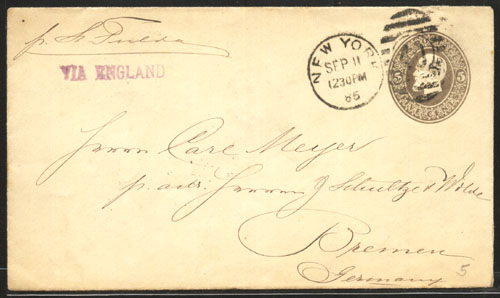 p. St. Fulda
VIA ENGLAND
NEW YORK
SEP 11
12 30 PM
86
5 5
Herrn Carl Meyer
p. adr. Herren J Schultze & Wolde
Bremen
Germany
5